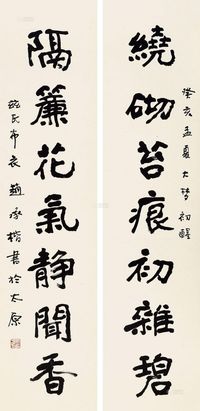 繞砌苔痕初雜碧
癸亥孟夏大梦初醒
隔簾花氣静聞香
民布衣趙承楷書於太原